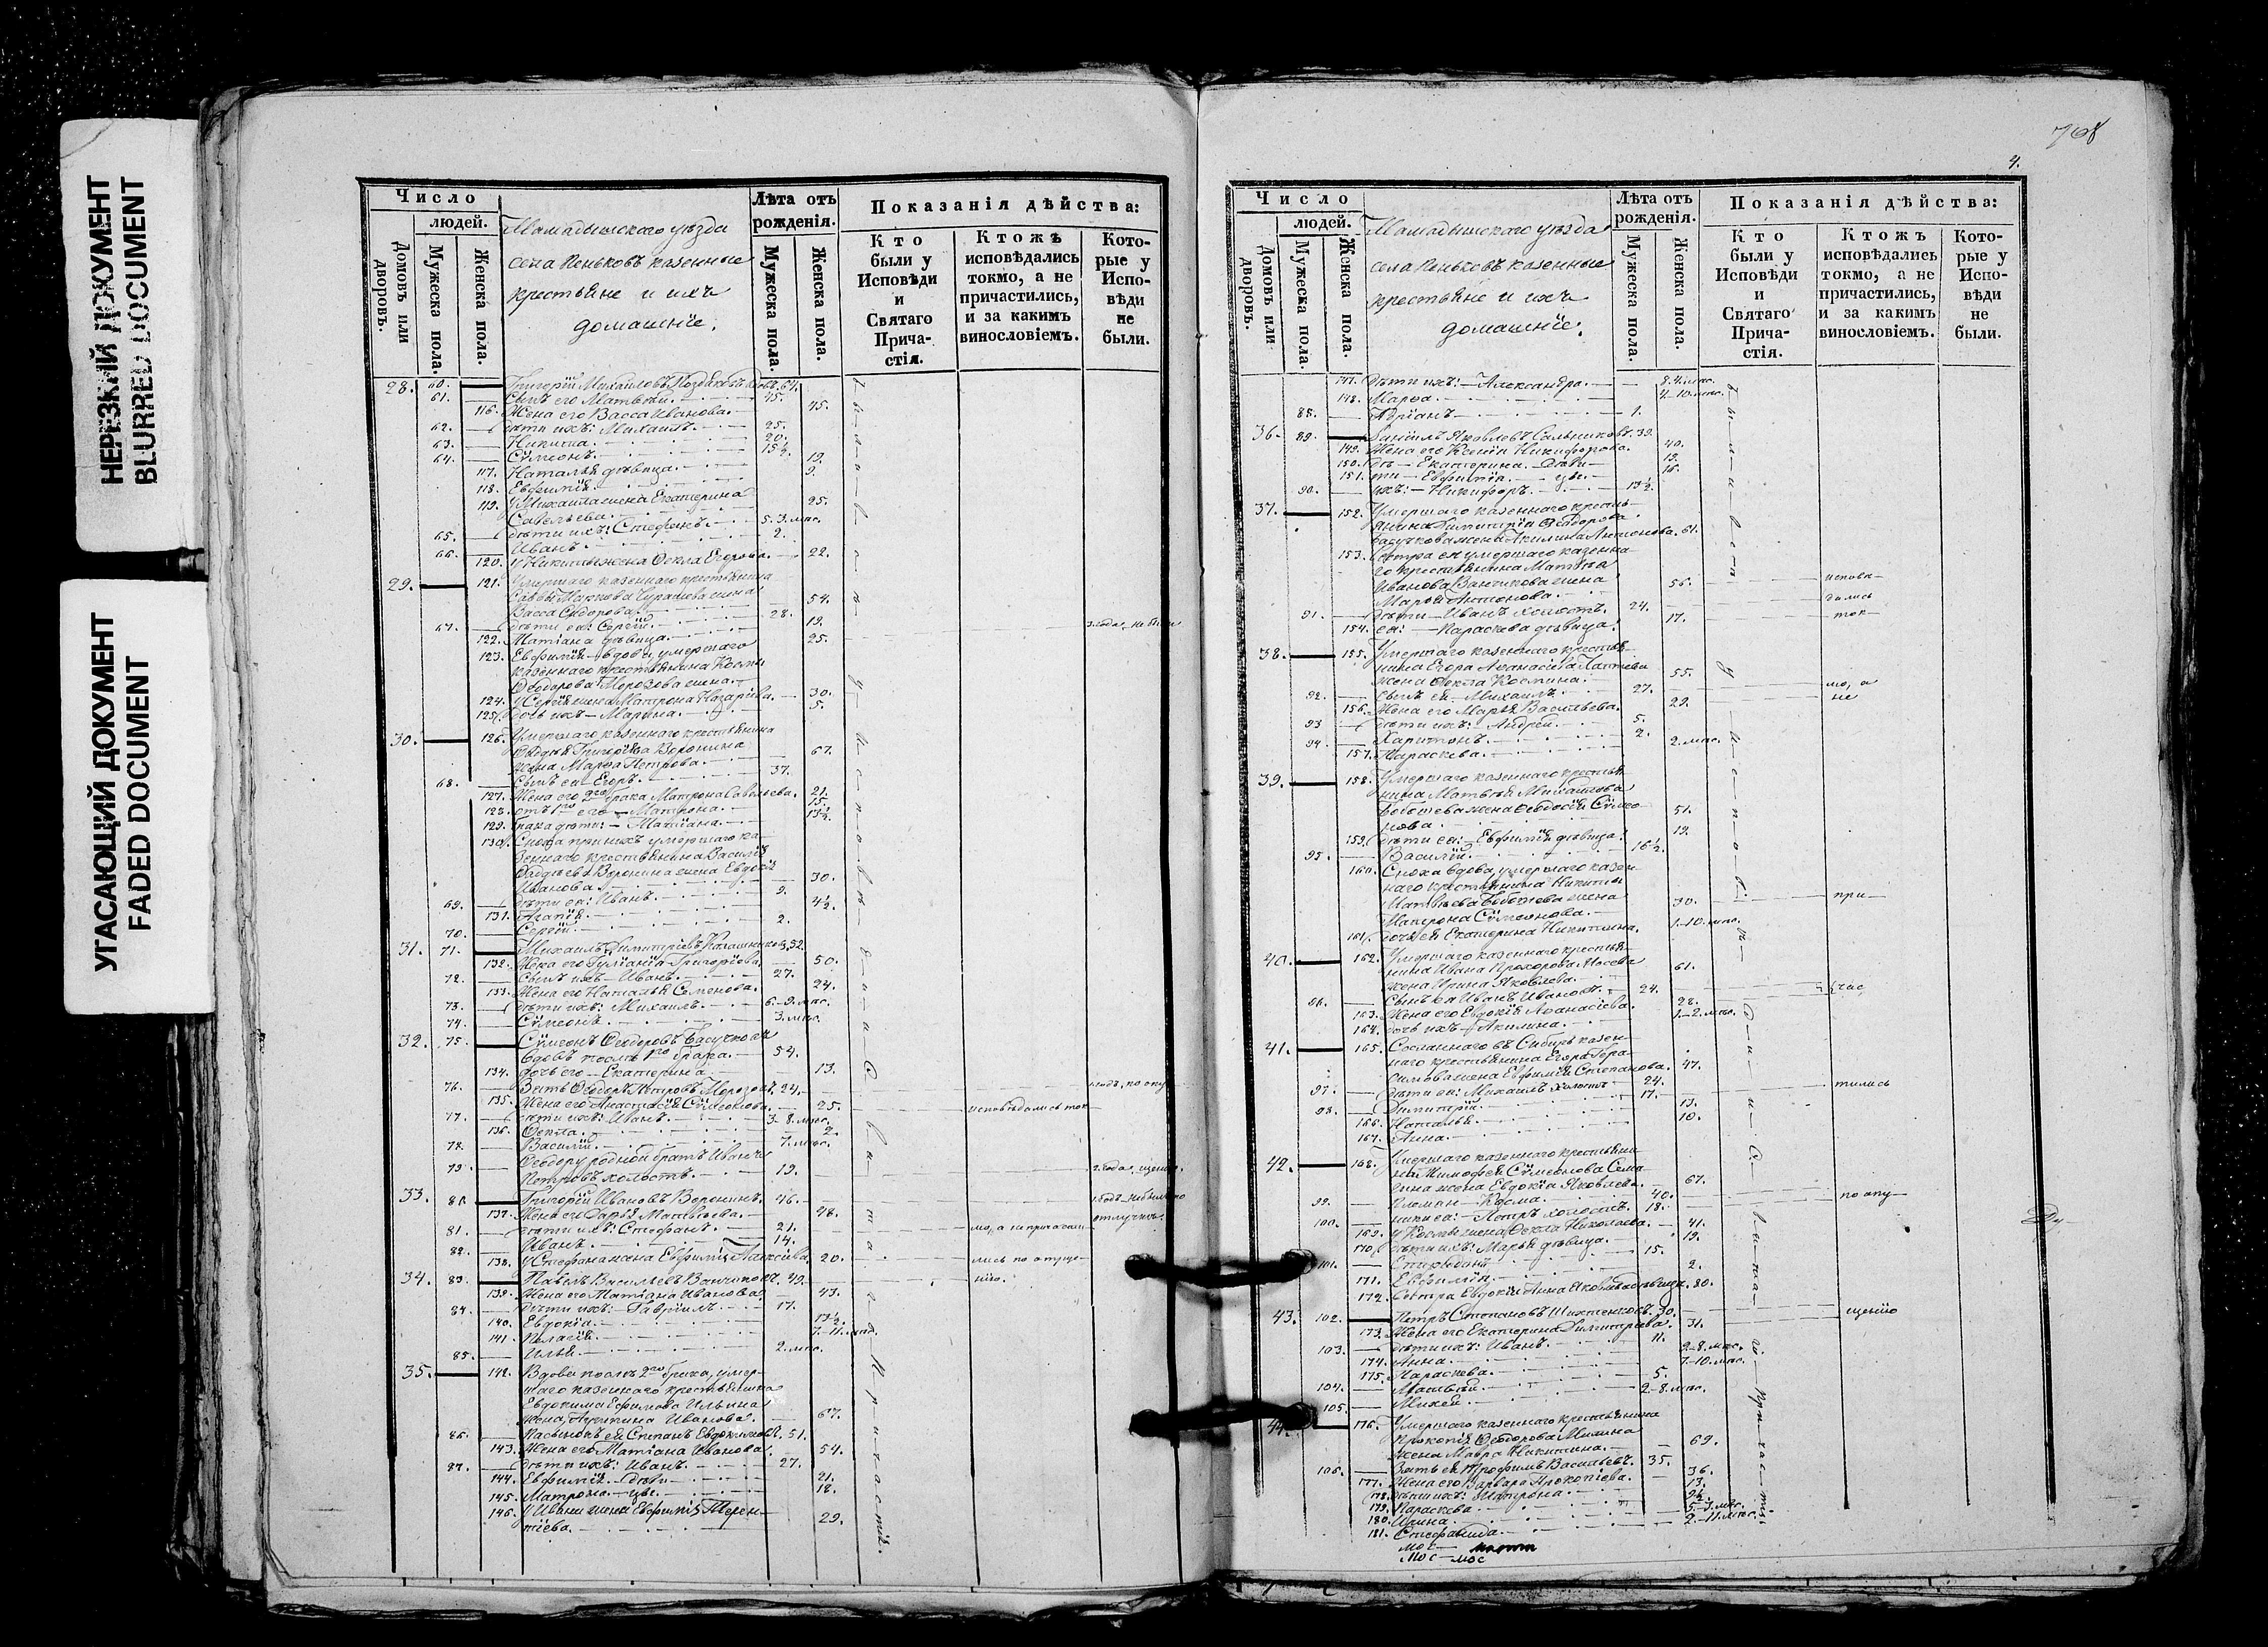 НЕРЕЗКИЙ ДОКУМЕНТ
BLURRED DOCUMENT
УГАСАЮЩИЙ ДОКУМЕНТ
FADED DOCUMENT
Число
людей.
Домовъ или дворовъ.
Мужеска пола.
Женска пола.
Мамадышскаго уѣзда
села Пеньковъ казенные
крестьяне и ихъ
домашніе.
Лѣта отъ рожденія.
Мужеска пола.
Женска пола.
Показанія дѣйства:
Кто были у Исповѣди и Святаго Причастія.
Ктожъ исповѣдались токмо, а не причастились, и за какимъ винословіемъ.
Которые у Исповѣди не были.
28. 60. Григорій Михайловъ 64.
61. Сынъ его Матвѣй. 45.
116. Жена его Васса Иванова. 45.
62. Дѣти ихъ: Михаилъ. 25.
63. Никита. 20.
64. Сѵмеонъ. 15½.
117. Наталья дѣвица. 19.
118. Евфимія. 9.
119. У Михаила жена Екатерина
Савельева. 25.
65. Дѣти ихъ: Стефанъ. 5. 3. мѣс.
66. Иванъ. 2.
120. У Никиты жена Ѳекла Егорова. 22.
29. 121. Умершаго казеннаго крестьянина
Саввы Маркова жена
Васса Сидорова. 54.
67. Дѣти ея: Сергій. 28.
122. Татіана дѣвица. 19.
123. Евфимія вдова, умершаго 25.
казеннаго крестьянина Космы
Ѳеодорова Морозова жена.
124. У Сергія жена Матрона Назарьева. 30.
125. Дочь ихъ Марина. 5.
30. 126. Умершаго казеннаго крестьянина
Григорьева Воронина
жена Марѳа Петрова. 67.
68. Сынъ ея Егоръ. 37.
127. Жена его 2го брака Матрона Савельева. 21.
128. отъ 1го его Матрона. 15.
129. брака дѣти: Татіана. 13½.
130. Сноха при нихъ умершаго ка-
зеннаго крестьянина Василія
Воронина жена Евдокія
Иванова. 30.
69. Дѣти ея: Иванъ. 9.
131. Агапія. 4½.
70. Сергій. 2.
31. 71. Михаилъ Димитріевъ Калашниковъ. 52.
132. Жена его Іуліанія Григорьева. 50.
72. Сынъ ихъ Иванъ. 27.
133. Жена его Наталья Семенова. 24.
73. Дѣти ихъ: Михаилъ. 6. 9. мѣс.
74. Сѵмеонъ. 3. мѣс.
32. 75. Сѵмеонъ Ѳеодоровъ Басучковъ
вдовъ послѣ 1го брака. 54.
134. Дочь его Екатерина. 13.
76. Зять Ѳеодоръ Петровъ Морозовъ. 24.
135. Жена его Анастасія Сѵмеонова. 25. исповѣдались ток-
77. Дѣти ихъ: Иванъ. 3. 8. мѣс.
136. Ѳекла. 2.
78. Василій. 7. мѣс.
79. Ѳеодору родной братъ Иванъ
Петровъ холостъ. 19.
33. 80. Григорій Ивановъ Воронинъ. 46.
137. Жена его Дарья Матвѣева. 48. отлучкѣ.
81. Дѣти ихъ: Стефанъ. 21. мо, а не причасти-
82. Иванъ. 14.
138. У Стефана жена Евфимія 20. лись по опуще-
34. 83. Павелъ Васильевъ Ванчиковъ. 49. нію.
139. Жена его Татіана Иванова. 43.
84. Дѣти ихъ: Гавріилъ. 17.
140. Евдокія. 13½.
141. Пелагія. 7. 11. мѣс.
85. Илья. 2. мѣс.
35. 142. Вдова послѣ 2го брака, умер-
шаго казеннаго крестьянина
Евдокима Ефимова Ильина
жена, Иванова. 67.
86. Пасынокъ ея Степанъ Евдокимовъ. 51.
143. Жена его Татіана Иванова. 54.
87. Дѣти ихъ: Иванъ. 27.
144. Евфимія дѣви- 21.
145. Матрона цы. 18.
146. У Ивана жена Евфимія Терен-
тіева. 29.
были у исповѣди и Святаго Причастія.
4.
Число
людей.
Домовъ или дворовъ.
Мужеска пола.
Женска пола.
Мамадышскаго уѣзда
села Пеньковъ казенные
крестьяне и ихъ
домашніе.
Лѣта отъ рожденія.
Мужеска пола.
Женска пола.
Показанія дѣйства:
Кто были у Исповѣди и Святаго Причастія.
Ктожъ исповѣдались токмо, а не причастились, и за какимъ винословіемъ.
Которые у Исповѣди не были.
147. Дѣти ихъ: Александра. 8. 4. мѣс.
148. Марѳа. 4. 10. мѣс.
88. Адріанъ. 1.
36. 89. Даніилъ Яковлевъ Сальниковъ. 39.
149. Жена его Ксенія Никифорова. 40.
150. Дѣ- Екатерина. Дѣви- 19.
151. ти Евфимія. цы. 16.
90. ихъ: Никифоръ. 13½.
37. 152. Умершаго казеннаго кресть-
янина Димитрія Ѳеодорова
Басучкова жена Акилина Антонова. 61.
153. Сестра ея умершаго казенна-
го крестьянина Матвѣя
Иванова Ванчикова жена
Марья Антонова. 56.
91. Дѣти Иванъ холостъ. 24.
154. ея: Параскева дѣвица. 17. ток-
38. 155. Умершаго казеннаго крестья-
нина Егора Аѳанасьева Лаптева
жена Ѳекла Космина. 55.
92. Сынъ ея Михаилъ. 27. мо, а
156. Жена его Марья Васильева. 29. не
93. Дѣти ихъ: Андрей. 5.
94. Харитонъ. 2.
157. Параскева. 2. мѣс.
39. 158. Умершаго казеннаго крестья-
нина Матвѣя Михайлова
Бобошева жена Ѳеодосія Сѵмео-
нова. 51.
159. Дѣти ея: Евфимія дѣвица. 19.
95. Василій. 16½.
160. Сноха вдова, умершаго казен-
наго крестьянина Никиты
Матвѣева Бобошева жена
Матрона Сѵмеонова. 30. при-
161. Дочь ея Екатерина Никитина. 1. 10. мѣс.
40. 162. Умершаго казеннаго крестья-
нина Ивана Прохорова Мосева
жена Ирина Яковлева. 61.
96. Сынъ ея Иванъ Ивановъ. 24. час
163. Жена его Евдокія Аѳанасьева. 28.
164. Дочь ихъ Акилина. 1. 2. мѣс.
41. 165. Сосланнаго въ Сибирь казен-
наго крестьянина Егора Гера-
симова жена Евфимія Степанова. 47.
97. Дѣти ея: Михаилъ холостъ. 24. тились
98. Димитрій. 17.
166. Наталья. 13.
167. Анна. 10.
42. 168. Умершаго казеннаго крестьяни-
на Тимофея Сѵмеонова Сема-
жена Евдокія Яковлева. 67.
99. Косма. 40. по опу-
100. Петръ холостъ. 18.
169. У Космы жена Ѳекла Николаева. 41.
170. Дѣти ихъ: Марья дѣвица. 19.
101. 15.
171. Евфимія. 2.
172. Сестра Евдокіи Анна Яковлева дѣвица. 80.
43. 102. Петръ Степановъ 30. щенію
173. Жена его Екатерина Димитріева. 31.
103. Дѣти ихъ: Иванъ. 11.
174. Анна. 9. 8. мѣс.
175. Параскева. 7. 10. мѣс.
104. Матвѣй. 5.
105. Михей. 2. 8. мѣс.
44. 176. Умершаго казеннаго крестьянина
Прокопія Ѳеодорова Милина
жена Мавра Никитина. 69.
106. Зять ея Трофимъ Васильевъ. 35.
177. Жена его Варвара Прокопіева. 36.
178. Дѣти ихъ: Матрона. 13.
179. Параскева.
180. Ирина. 5. 3. мѣс.
181. Стефанида. 2. 11. мѣс.
были у исповѣди и Святаго Причастія